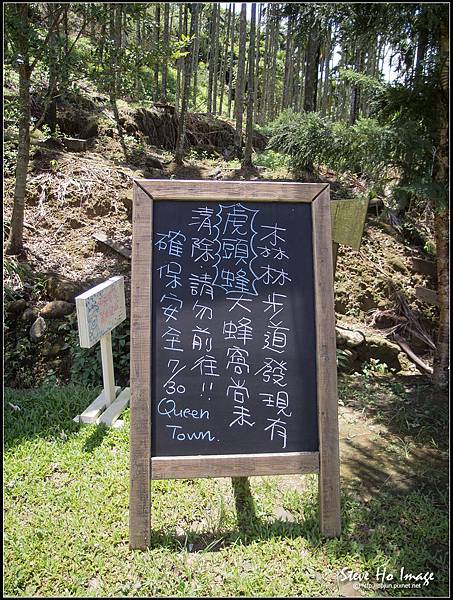 森林步道發現
虎頭蜂大蜂窩尚未
清除．請勿前往!!
確保安全 7/30
Queen
Town.
Steve Ho Image